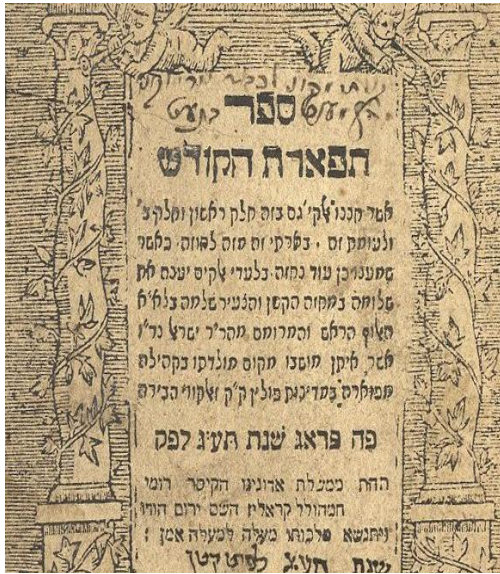 ספר
תפארת הקודש
אשר חננו אלקי׳ גם בזה חלק ראשון וחלק ב׳
ולעומת זה , בארתי זה מזה לחוזה . כאשר
שמענו כן עוד נחזה . בלעדי אלקים יענה את
שלומה במחזה הקטן והצעיר שלמה בלא״א
האלוף הראש והמרומם מהר״ר ישראל נר״ו
אשר איתן מושבו מקום מולדתו בקהילה
מפוארה במדינת פולין ק״ק
פה פראג שנת תע״ג לפק
תחת ממשלת אדונינו הקיסר רומי
המהולל קראליז השם ירום הודו
ויתנשא מלכותו מעלה למעלה אמן :
שנת תע״ג לפרט קטן